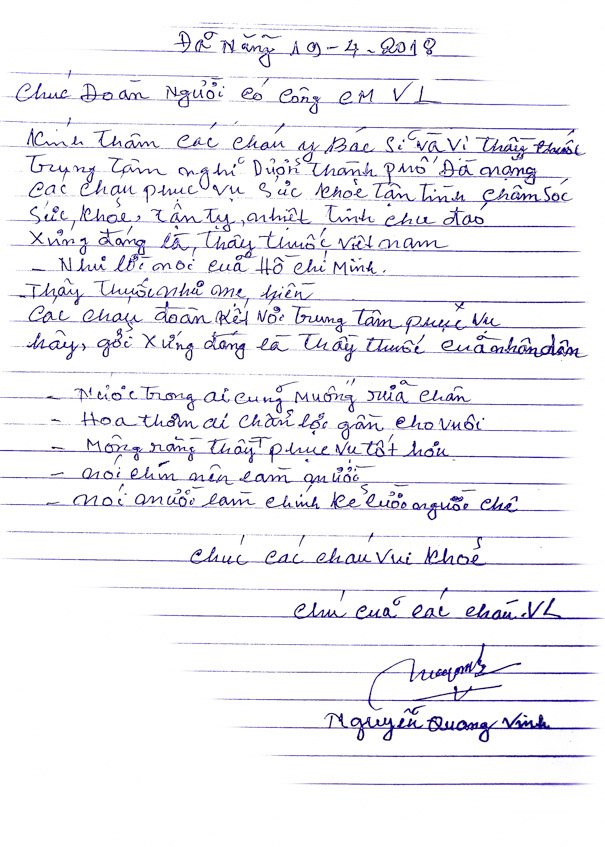 Đà Nẵng 19-4-2018
Chúc Đoàn Người có công CM VL
Kính thăm các cháu y Bác Sĩ và Vì thầy thuốc
trung tâm nghỉ Dưỡng thành phố Đà nẵng
các cháu phục vụ Sức khỏe tận tình chăm sóc
Sức khỏe, tận tụy, nhiệt tình chu đáo
Xứng đáng là thầy thuốc việt nam
- Như lời nói của Hồ Chí Minh.
Thầy thuốc như mẹ hiền
Các cháu đoàn kết trung tâm phục vụ
hãy, xứng đáng là thầy thuốc của nhân dân
- Nước trong ai cũng muống rửa chân
- Hoa thơm ai chẳn lại gần cho vui
- Mông rằng thầy phục vụ tốt hơn
- nói chín nên làm mười
- nói mười làm chính kẻ cười người chê
chúc các cháu vui khỏe
chú của các cháu VL
Nguyễn Quang Vinh